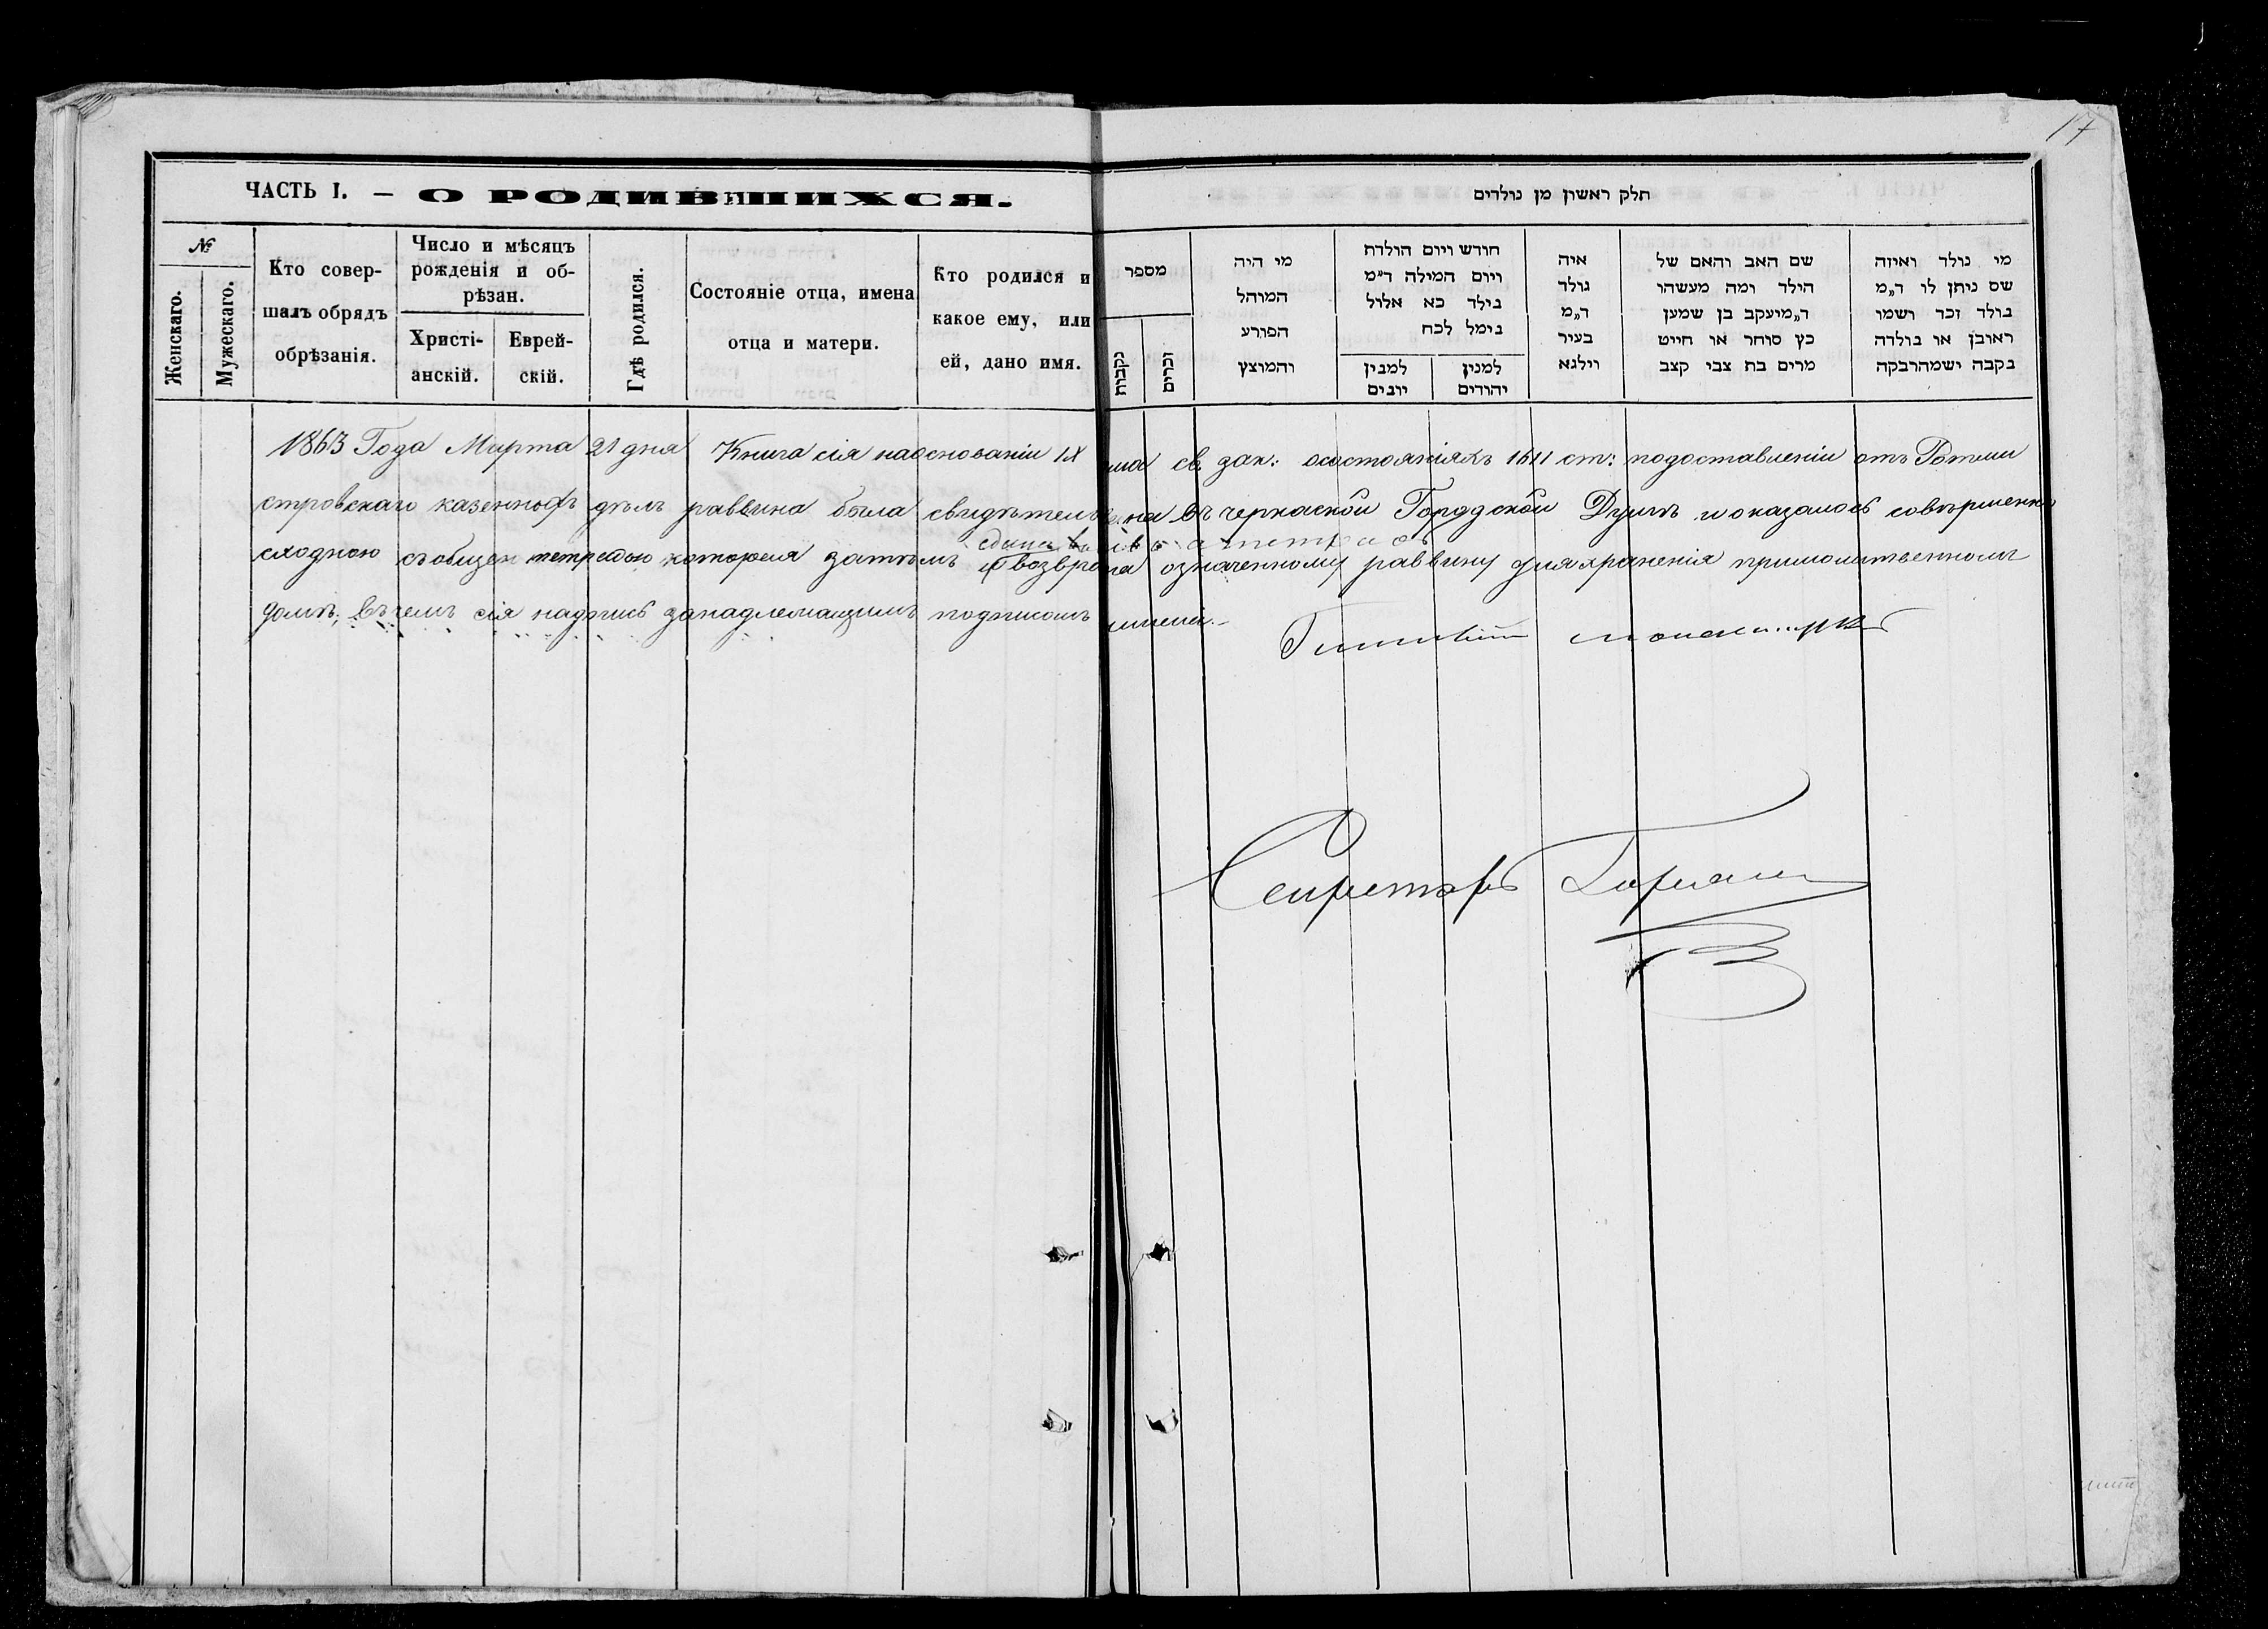 17
ЧАСТЬ I. — О РОДИВШИХСЯ.
№
Женскаго.
Мужескаго.
Кто совер-
шалъ обрядъ
обрѣзанія.
Число и мѣсяцъ
рожденія и об-
рѣзан.
Христі-
анскій.
Еврей-
скій.
Гдѣ родился.
Состояніе отца, имена
отца и матери.
Кто родился и
какое ему, или
ей, дано имя.
חלק ראשון מן נולדים
מספר
נקבות
זכרים
מי היה
המוהל
הפורע
והמוצץ
חודש ויום הולדת
ויום המילה ד״מ
נולד כא אלול
נימל לכח
למנין
יונים
למנין
יהודים
איה
נולד
ד״מ
בעיר
ווילנא
שם האב והאם של
הילד ומה מעשהו
ד״מ יעקב בן שמען
כץ סוחר או חייט
מרים בת צבי קצב
מי נולד ואיזה
שם ניתן לו ד״מ
נולד זכר ושמו
ראובן או נולדה
נקבה ושמה רבקה
1863 Года Марта 21 дня Книга сія на основаніи IX тома св. зак: о состояніяхъ 1611 ст: по доставленіи отъ Ротми
стровскаго казенныхъ дѣлъ раввина была свидѣтельствована въ черкаской Городской Думѣ и оказалось совершенно
сходною съ общею тетредью которая затѣмъ и возвращена означенному раввину для храненія при молитвенномъ
домѣ; въ чемъ сія надпись за надлежащимъ подписомъ
Секретарь